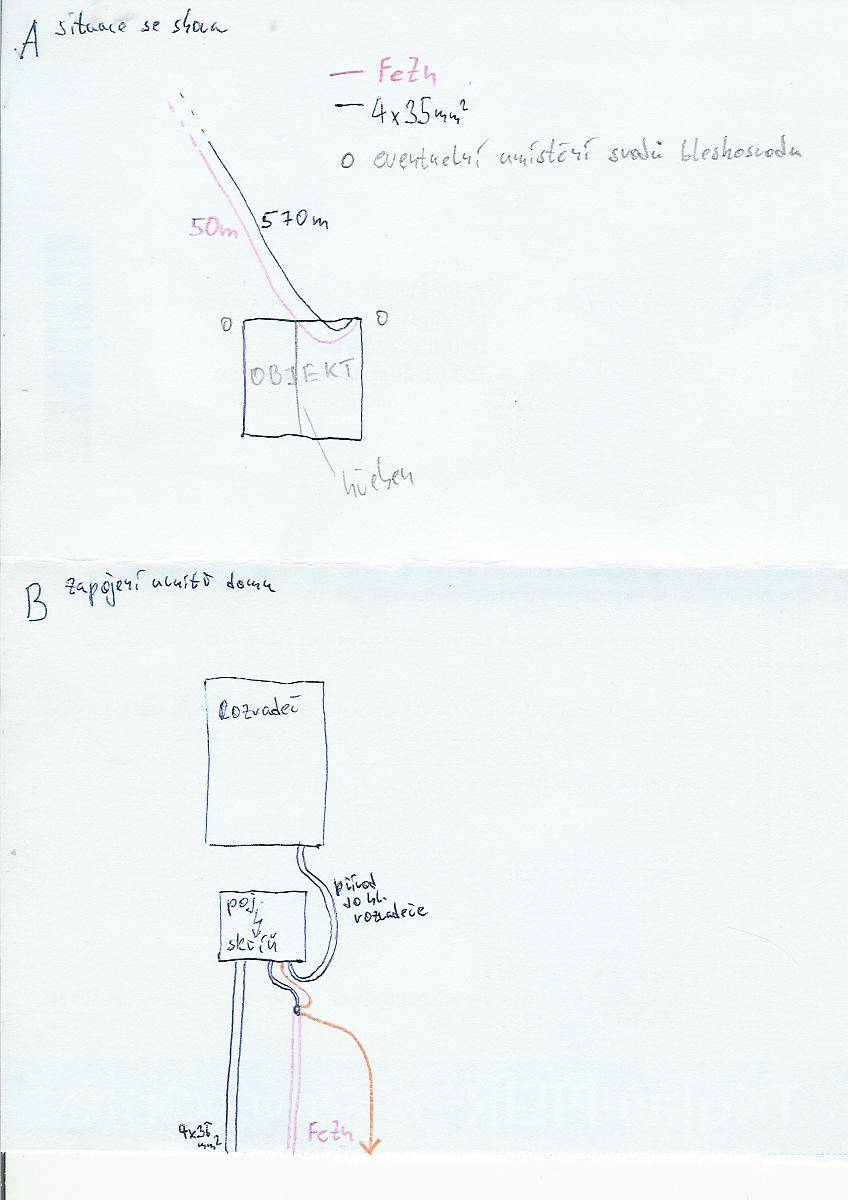 A situace se shora
FeZn
4x35mm²
o eventuelní umístění svodů bleskosvodu
50m
570m
O
O
OBJEKT
hřeben
B zapojení uvnitř domu
Rozvaděč
přívod
do hl.
rozvaděče
poj.
skříň
4x35
mm²
FeZn